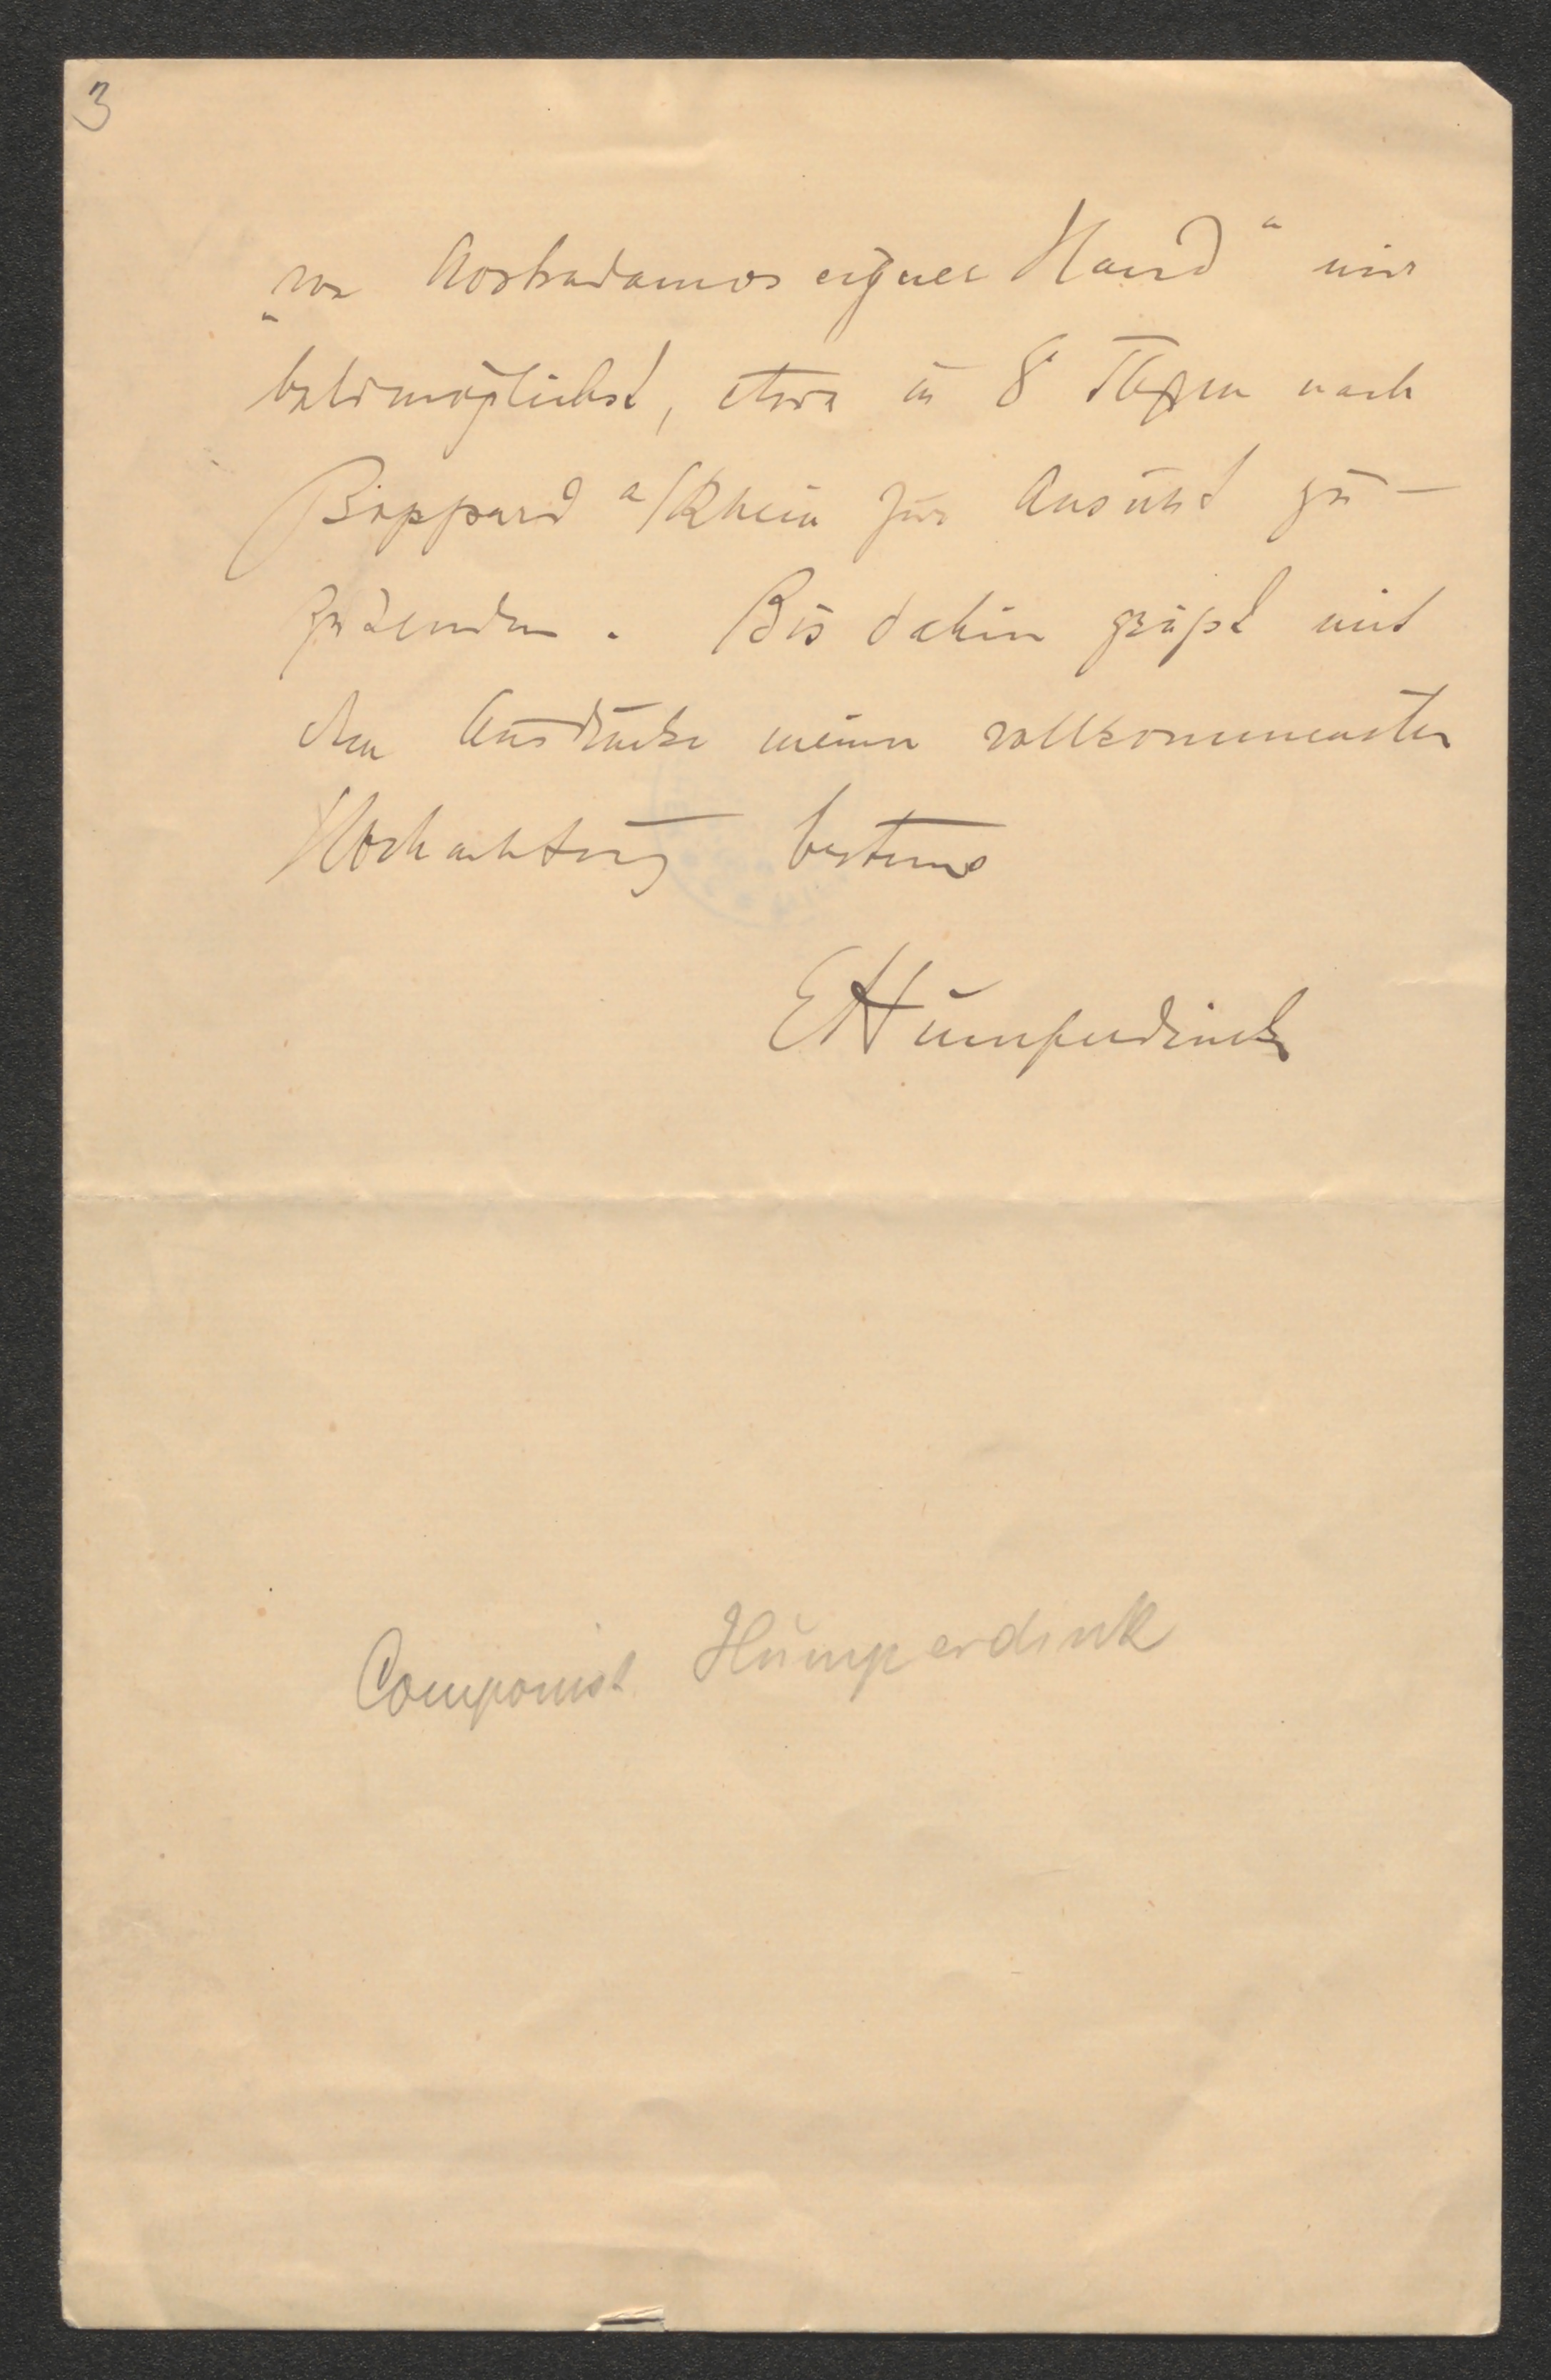 3
„von Nostradamus eigner Hand“ mir
baldmöglichst, etwa in 8 Tagen nach
Boppard a/Rhein zur Ansicht zu-
zusenden. Bis dahin grüßt mit
dem Ausdrucke meiner vollkommensten
Hochachtung bestens
EHumperdinck
Componist Humperdink